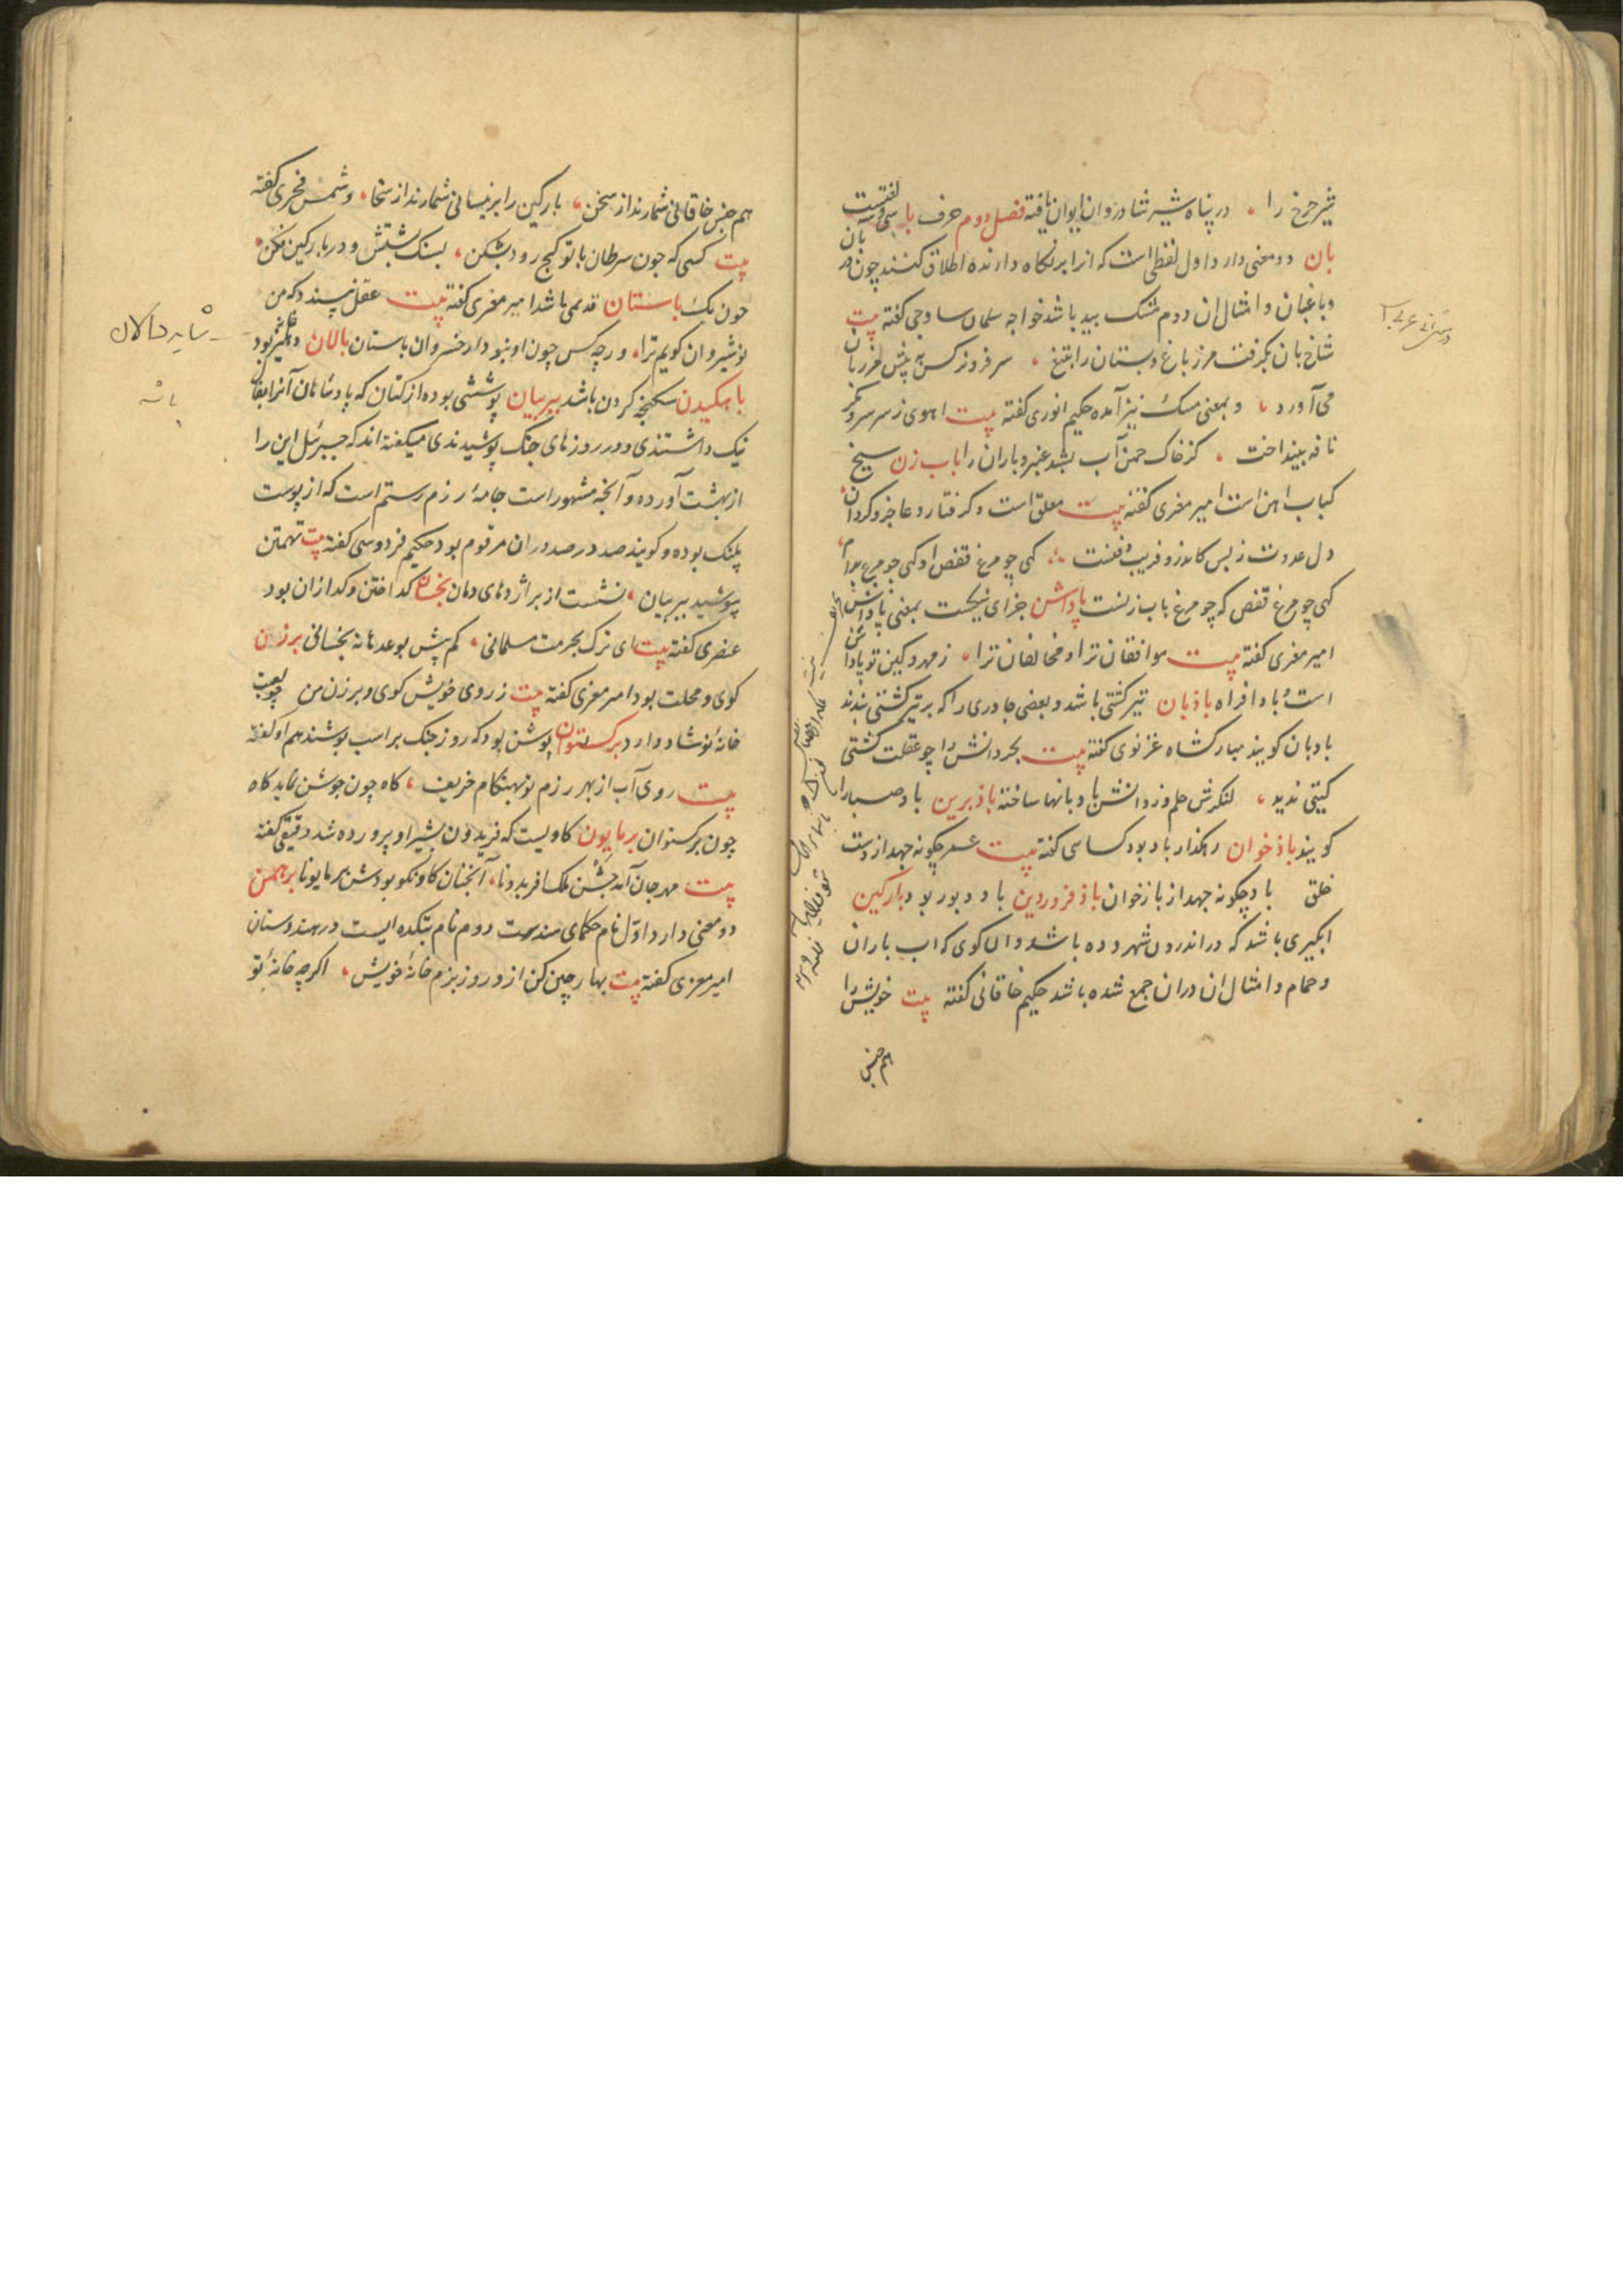 شیر چرخ را ، در پناه شیر شادروان ایوان یافته فصل دوم حرف با سی و سه لغتست
بان دو معنی دارد اول لفظی است که انرا بر نکاه دارنده اطلاق کنند چون دربان
و باغبان و امثال ان دوم مشک بید باشد خواجه سلمان ساوجی کفته بیت
شاخ بان بکرفت مرز باغ و بستان را بتیغ ، سر فرو نرکس به پیش مرزبان
می آورد ، و بمعنی مشک نیز آمده حکیم انوری کفته بیت اهوی از سر سرو مکر
نافه بینداخت ، کز خاک چمن آب بشد عنبر و بان را باب زن سیخ
کباب اهن است امیر معزی کفته بیت معلق است و کرفتار و عاجز و کردان
دل عدوت ز بس کاندرو فریب و فنست ، کهی چو مرغ قفص او کهی چو مرغ
کهی چو مرغ قفص که چو مرغ باب زنست پاداشن جزای نیکیست بمعنی پاداش
امیر معزی کفته بیت موافقان ترا و مخالفان ترا ، ز مهر و کین تو پاداشن
است و باد افراه باذبان تیر کشتی باشد و بعضی چادری را که بر تیر کشتی بندند
بادبان کویند مبارکشاه غزنوی کفته بیت بحر دانش را چو عقلت کشتی
کیتی ندید ، لنکرش حلم و ز دانش بادبانها ساخته باذبرین باد صبا را
کویند باذخوان رهکذار باد بود کسایی کفته بیت عمر چکونه جهد از دست
خلق باد چکونه جهد از بازخوان باذ فروردین باد دبور بود بارکین
ابکیری باشد که در اندرون شهر و ده باشد و ان کوی که اب باران
و حمام و امثال ان دران جمع شده باشد حکیم خاقانی کفته بیت خویش را
هم جنس
هم جنس خاقانی شمارند از سخن ، بارکین را ابر نیسانی شمارند از سخا ، و شمس فخری کفته
بیت کسی که چون سرطان با تو کج رود بشکن ، بسنک پشتش و در بارکین فکن
چون باستان قدیمی باشد امیر معزی کفته بیت عقل نپسندد که من
نوشیروان کویم ترا ، ورچه کس چون او نبود از خسروان باستان بالان دهلیز خانه بود
باهکیدن سکنجه کردن باشد ببر بیان پوششی بوده از کتان که پادشاهان آنرا بفال
نیک داشتندی و در روزهای جنک پوشیدندی میکفته اند که جبرئیل این را
از بهشت آورده و آنچه مشهور است جامهٔ رزم رستم است که از پوست
پلنک بوده و کویند صد در صد دران مرقوم بود حکیم فردوسی کفته بیت تهمتن
بپوشید ببر بیان ، نشست از بر اژدهای دمان بخسان کداختن و کدازان بود
عنصری کفته بیت ای ترک بحرمت مسلمانی ، کم بیش بوعدها نه بخسانی برزن
کوی و محلت بود امیر معزی کفته بیت ز روی خویش کوی و برزن من چو لعبت
خانهٔ نوشاد دارد برکستوان پوشن بود که روز جنک بر اسب پوشند هم او کفته
بیت روی آب از بهر رزم تو بهنکام خریف ، کاه چون جوشن نماید کاه
چون برکستوان برمایون کاویست که فریدون بشیر او پرورده شد دقیقی کفته
بیت مهرجان آمد جشن ملک افریدونا ، آنچنان کاو نکو بودش برمایونا برهمن
دو معنی دارد اول نام حکمای هندست دوم نام بتکده ایست در هندوستان
امیر معزی کفته بیت بهار چین کن از و روز بزم خانهٔ خویش ، اکرچه خانهٔ تو
شاید دالان
باشد